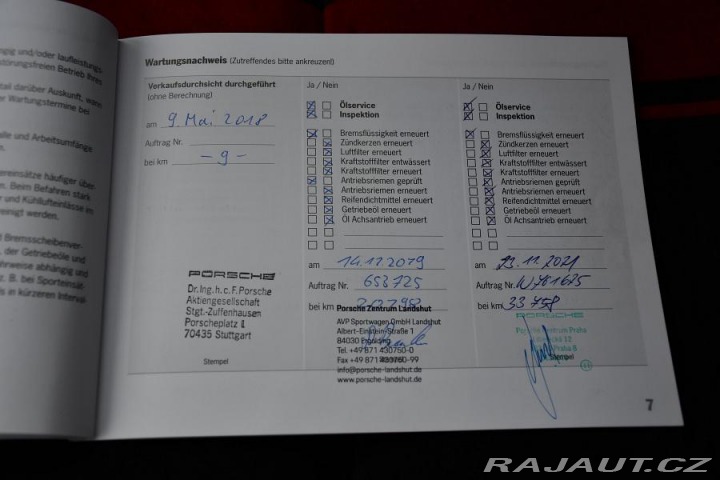 gig und/oder laufleistungs-
störungsfreien Betrieb Ihres
tail darüber Auskunft, wann
er Wartungstermine bei
alle und Arbeitsumfänge
ereinsätze häufiger über-
n. Beim Befahren stark
r und Kühllufteinlässe im
ereinigt werden.
d Bremsscheibenver-
, der Getriebeöle und
hrweise abhängig und
. B. bei Sporteinsät-
in kürzeren Interval-
Wartungsnachweis (Zutreffendes bitte ankreuzen!)
Verkaufsdurchsicht durchgeführt
(ohne Berechnung)
am 9. Mai 2018
Auftrag Nr.
bei km - 9 -
PORSCHE
Dr.Ing.h.c.F.Porsche
Aktiengesellschaft
Stgt.-Zuffenhausen
Porscheplatz 1
70435 Stuttgart
Stempel
Ja / Nein
Ölservice
Inspektion
Bremsflüssigkeit erneuert
Zündkerzen erneuert
Luftfilter erneuert
Kraftstofffilter entwässert
Kraftstofffilter erneuert
Antriebsriemen geprüft
Antriebsriemen erneuert
Reifendichtmittel erneuert
Getriebeöl erneuert
Öl Achsantrieb erneuert
am 14.12.2019
Auftrag Nr. 653725
bei km
Porsche Zentrum Landshut
AVP Sportwagen GmbH Landshut
Albert-Einstein-Straße 1
84030
Tel. +49 871 430750-0
Fax +49 871 430750-99
info@porsche-landshut.de
www.porsche-landshut.de
Ja / Nein
Ölservice
Inspektion
Bremsflüssigkeit erneuert
Zündkerzen erneuert
Luftfilter erneuert
Kraftstofffilter entwässert
Kraftstofffilter erneuert
Antriebsriemen geprüft
Antriebsriemen erneuert
Reifendichtmittel erneuert
Getriebeöl erneuert
Öl Achsantrieb erneuert
am 23.11.2021
Auftrag Nr. W781675
bei km 33 758
PORSCHE
Porsche Zentrum Praha
Stempel
7
RAJAUT.CZ